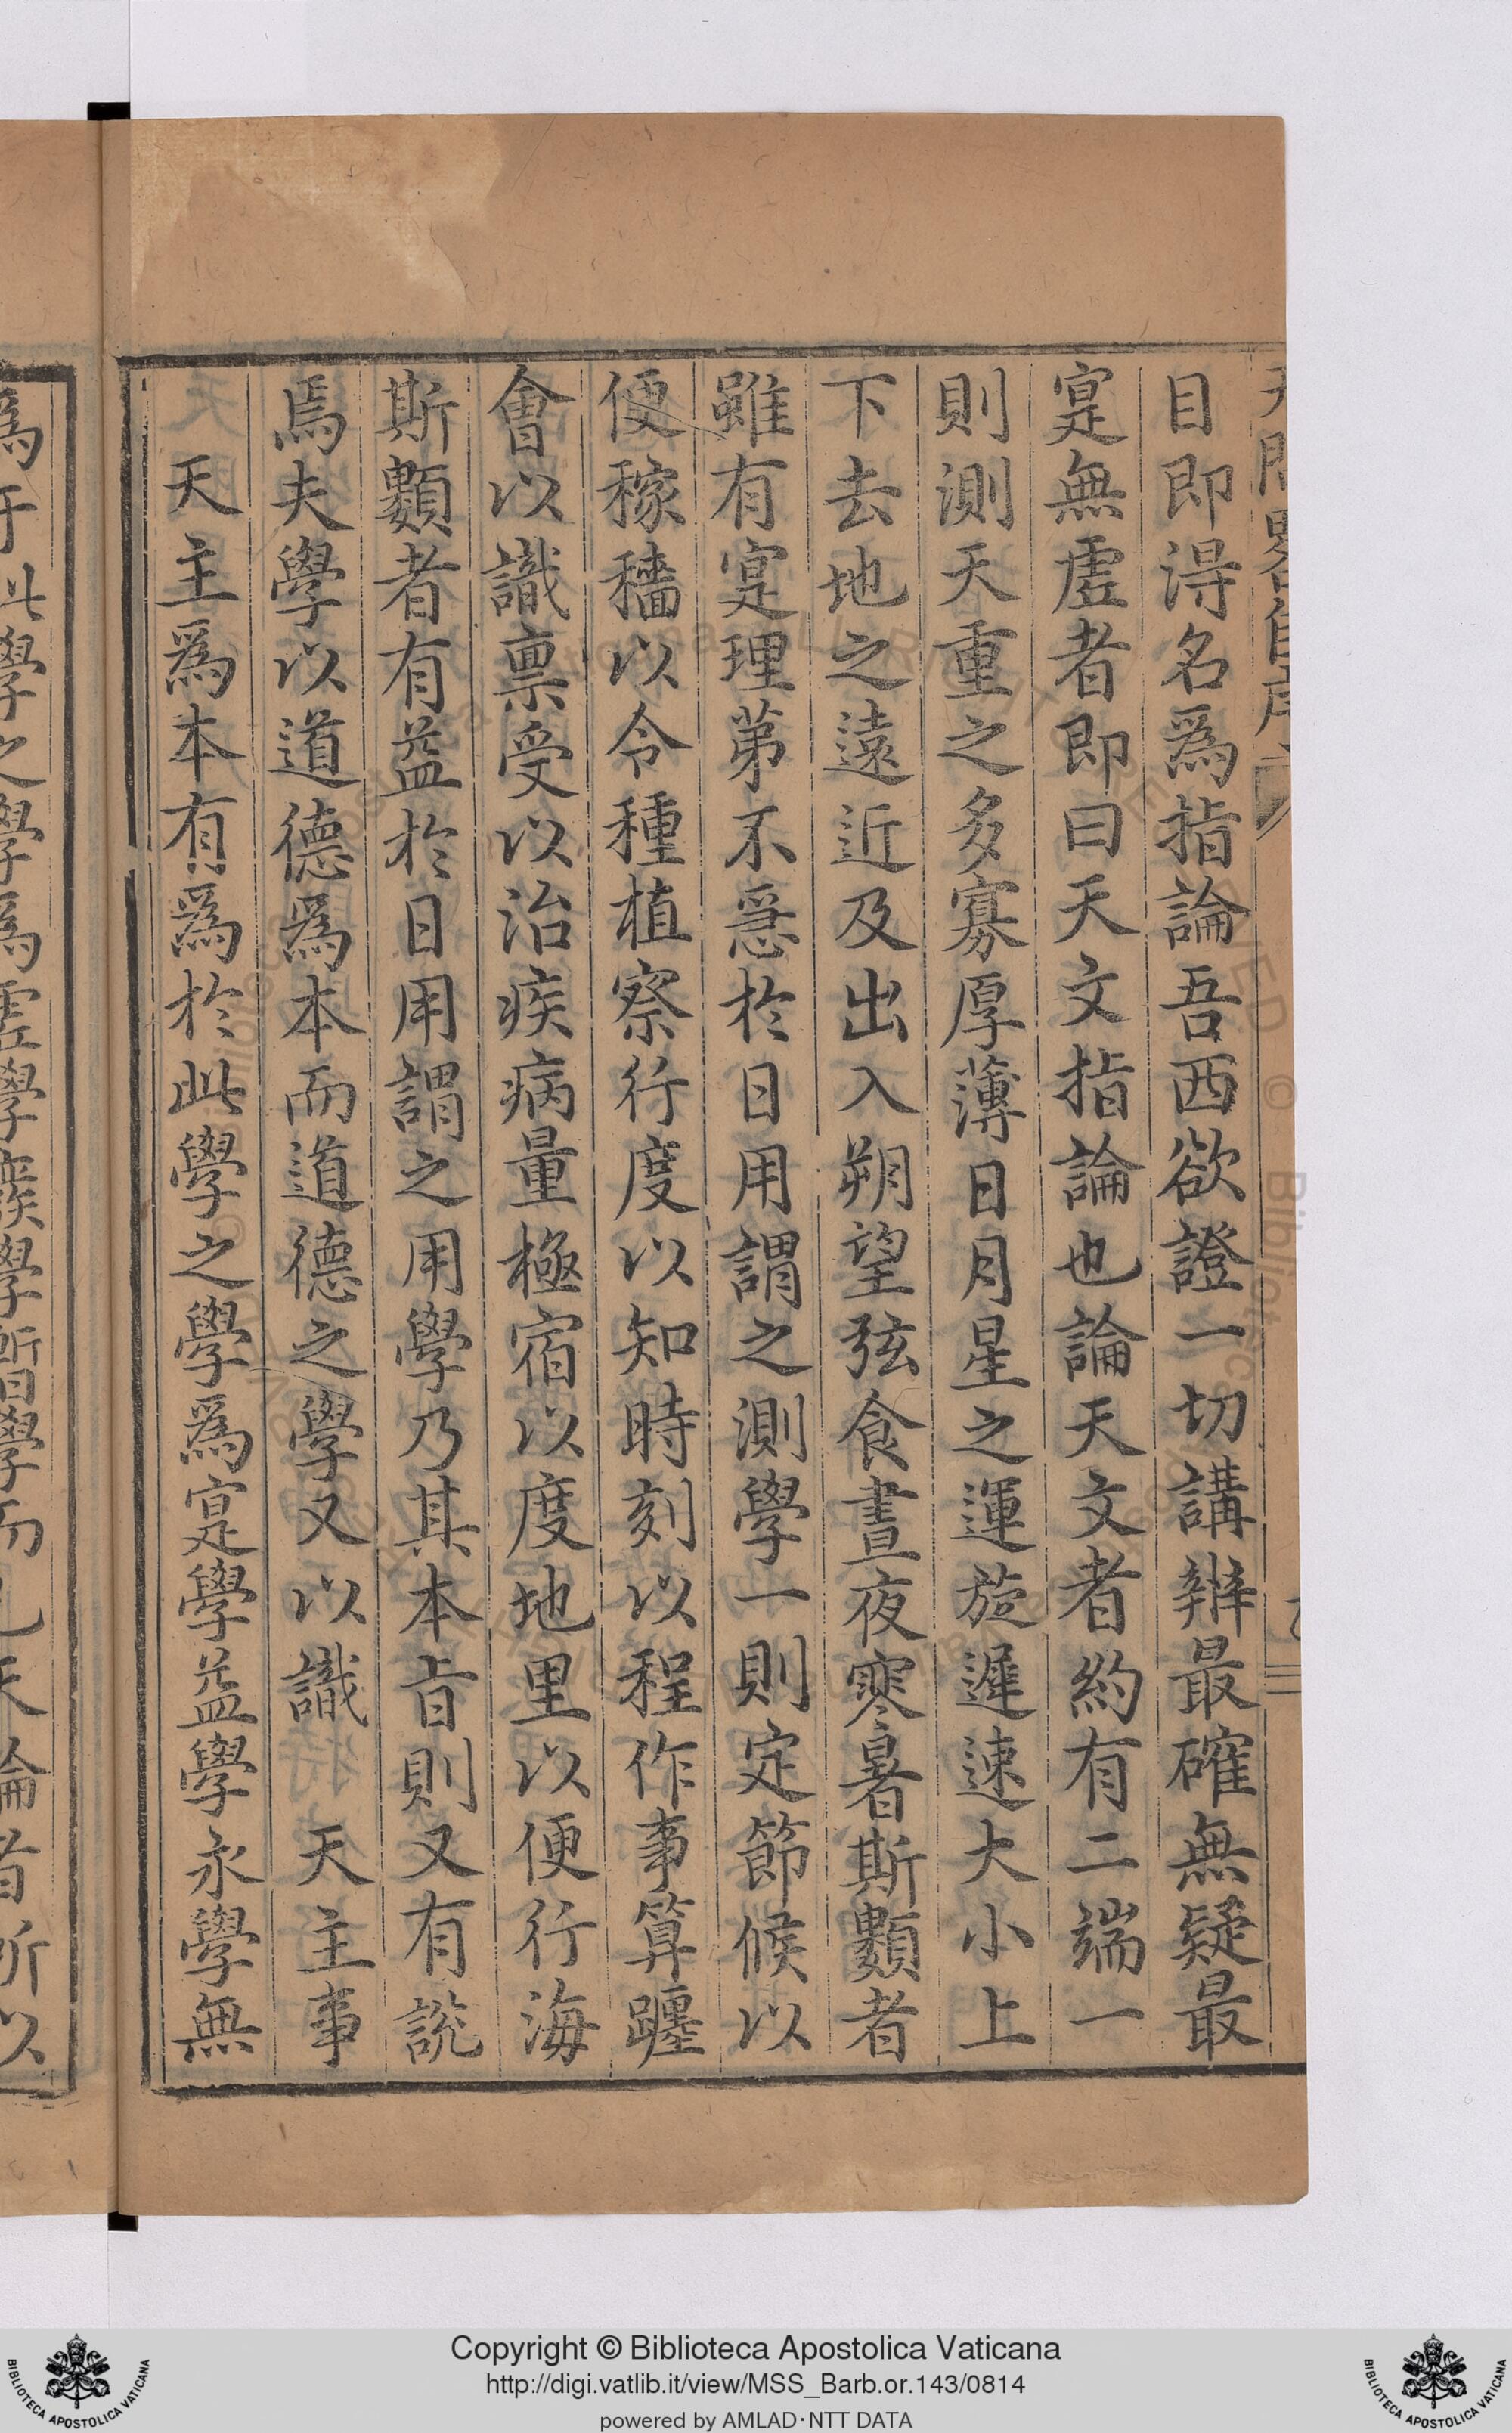 天問畧自序
目即淂名爲指論吾西欲證一切講辨最確無疑最
寔無虗者即曰天文指論也論天文者約有二端一
則測天重之多寡厚薄日月星之運旋遲速大小上
下去地之遠近及出入朔望弦食晝夜寒暑斯類者
雖有寔理第不急於日用謂之測學一則定節候以
便稼穡以令種植察行度以知時刻以程作事算躔
會以識禀受以治疾病量極宿以度地里以便行海
斯類者有益於日用謂之用學乃其本旨則又有說
焉夫學以道德爲本而道德之學又以識 天主事
天主爲本有爲於此學之學爲寔學益學永學無
Copyright © Biblioteca Apostolica Vaticana
http://digi.vatlib.it/view/MSS_Barb.or.143/0814
powered by AMLAD·NTT DATA
BIBLIOTECA APOSTOLICA VATICANA
BIBLIOTECA APOSTOLICA VATICANA